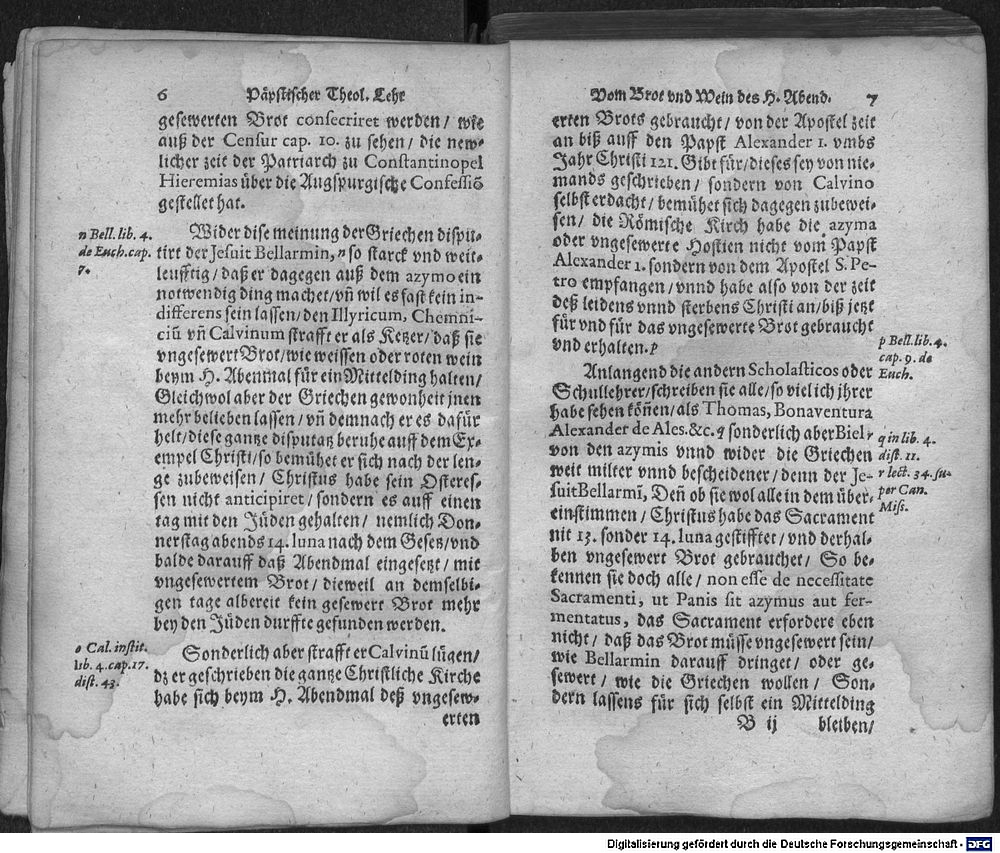 6 Päpstischer Theol. Lehr
gesewerten Brot consecriret werden/ wie
auß der Censur cap. 10. zu sehen/ die new-
licher zeit der Patriarch zu Constantinopel
Hieremias über die Augspurgische Confessiō
gestellet hat.
Wider dise meinung der Griechen dispu-
tirt der Jesuit Bellarmin, n so starck vnd weit-
leufftig/ daß er dagegen auß dem azymo ein
notwendig ding machet/ vñ wil es fast kein in-
differens sein lassen/ den Illyricum, Chemni-
ciū vñ Calvinum strafft er als Ketzer/ daß sie
vngesewert Brot/ wie weissen oder roten wein
beym H. Abenmal für ein Mittelding halten/
Gleichwol aber der Griechen gewonheit jnen
mehr belieben lassen/ vñ demnach er es dafür
helt/ diese gantze disputatz beruhe auff dem Ex-
empel Christi/ so bemühet er sich nach der len-
ge zubeweisen/ Christus habe sein Osteres-
sen nicht anticipiret/ sondern es auff einen
tag mit den Jüden gehalten/ nemlich Don-
nerstag abends 14. luna nach dem Gesetz/ vnd
balde darauff daß Abendmal eingesetzt/ mit
vngesewertem Brot/ dieweil an demselbi-
gen tage albereit kein gesewert Brot mehr
bey den Jüden durffte gefunden werden.
Sonderlich aber strafft er Calvinū lügen/
dz er geschrieben die gantze Christliche Kirche
habe sich beym H. Abendmal deß vngesew-
erten
n Bell. lib. 4.
de Euch. cap.
7.
o Cal. instit.
lib. 4. cap. 17.
dist. 43.
Vom Brot vnd Wein des H. Abend. 7
erten Brots gebraucht/ von der Apostel zeit
an biß auff den Papst Alexander 1. vmbs
Jahr Christi 121. Gibt für/ dieses sey von nie-
mands geschrieben/ sondern von Calvino
selbst erdacht/ bemühet sich dagegen zubewei-
sen/ die Römische Kirch habe die azyma
oder vngesewerte Hostien nicht vom Papst
Alexander 1. sondern von dem Apostel S. Pe-
tro empfangen/ vnnd habe also von der zeit
deß leidens vnnd sterbens Christi an/ biß jetzt
für vnd für das vngesewerte Brot gebraucht
vnd erhalten. p
Anlangend die andern Scholasticos oder
Schullehrer/ schreiben sie alle/ so viel ich jhrer
habe sehen köñen/ als Thomas, Bonaventura
Alexander de Ales. &c. q sonderlich aber Biel r
von den azymis vnnd wider die Griechen
weit milter vnnd bescheidener/ denn der Je-
suit Bellarmī, Deñ ob sie wol alle in dem über-
einstimmen/ Christus habe das Sacrament
nit 13. sonder 14. luna gestifftet/ vnd derhal-
ben vngesewert Brot gebrauchet/ So be-
kennen sie doch alle/ non esse de necessitate
Sacramenti, ut Panis sit azymus aut fer-
mentatus, das Sacrament erfordere eben
nicht/ daß das Brot müsse vngesewert sein/
wie Bellarmin darauff dringet/ oder ge-
sewert/ wie die Griechen wollen/ Son-
dern lassens für sich selbst ein Mittelding
B ij bleiben/
p Bell. lib. 4.
cap. 9. de
Euch.
q in lib. 4.
dist. 11.
r lect. 34. su-
per Can.
Miss.
Digitalisierung gefördert durch die Deutsche Forschungsgemeinschaft - DFG